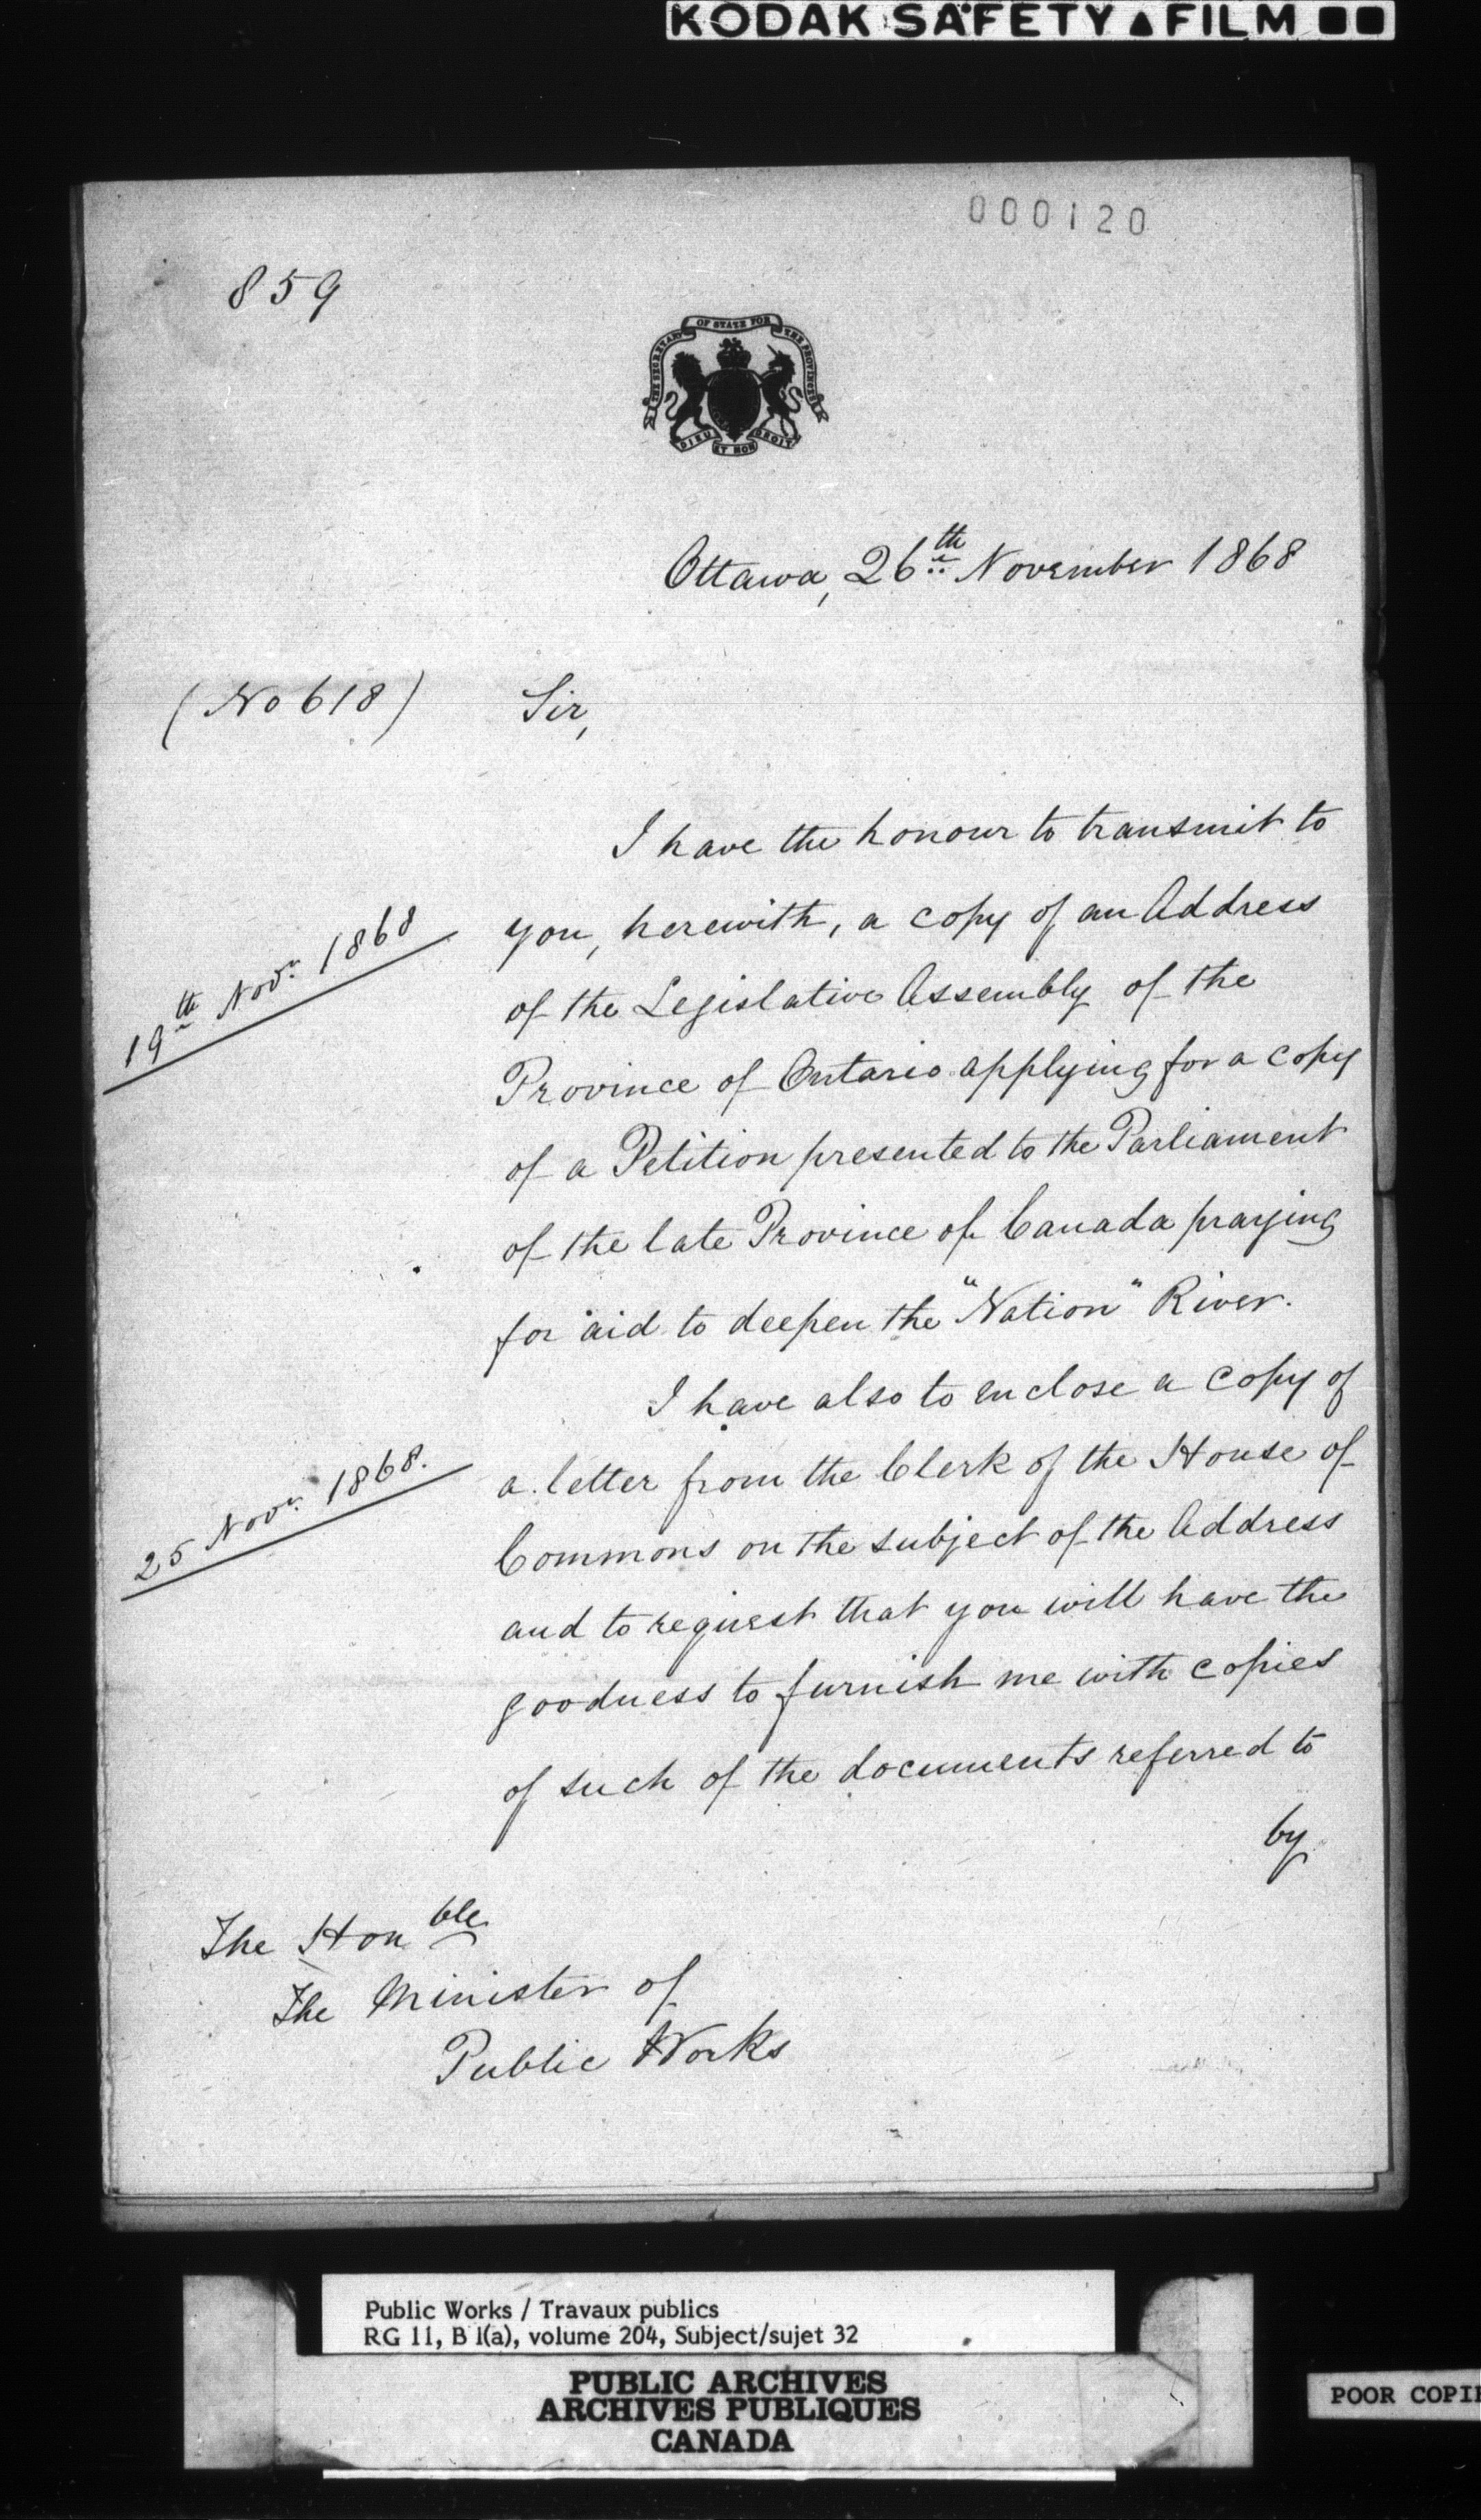 KODAK SAFETY ▲ FILM
000120
859
THE SECRETARY OF STATE FOR THE PROVINCES
DIEU ET MON DROIT
Ottawa, 26th November 1868
(No 618)
Sir,
I have the honour to transmit to
19th Novr. 1868
you, herewith, a copy of an Address
of the Legislative Assembly of the
Province of Ontario applying for a copy
of a Petition presented to the Parliament
of the late Province of Canada praying
for aid to deepen the "Nation" River.
I have also to enclose a copy of
25 Novr. 1868.
a letter from the Clerk of the House of
Commons on the subject of the Address
and to request that you will have the
goodness to furnish me with copies
of such of the documents referred to
by
The Honble
The Minister of
Public Works
Public Works / Travaux publics
RG 11, B 1(a), volume 204, Subject/sujet 32
PUBLIC ARCHIVES
ARCHIVES PUBLIQUES
CANADA
POOR COPI